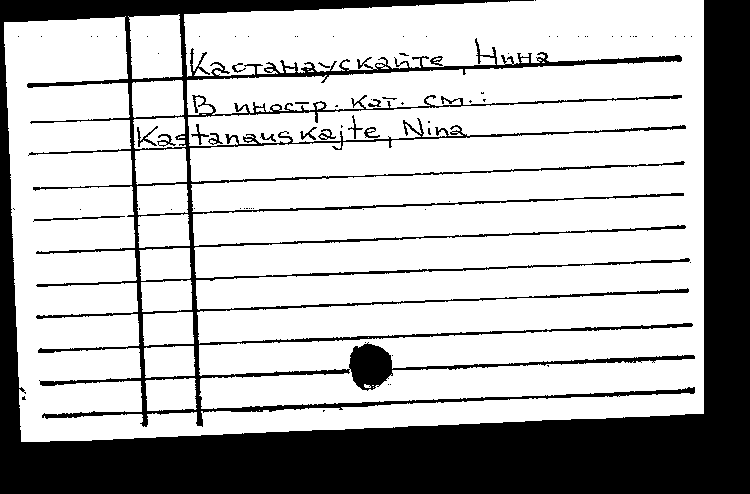 Кастанаускайте, Нина
В иностр. кат. см.:
Kastanauskajte, Nina